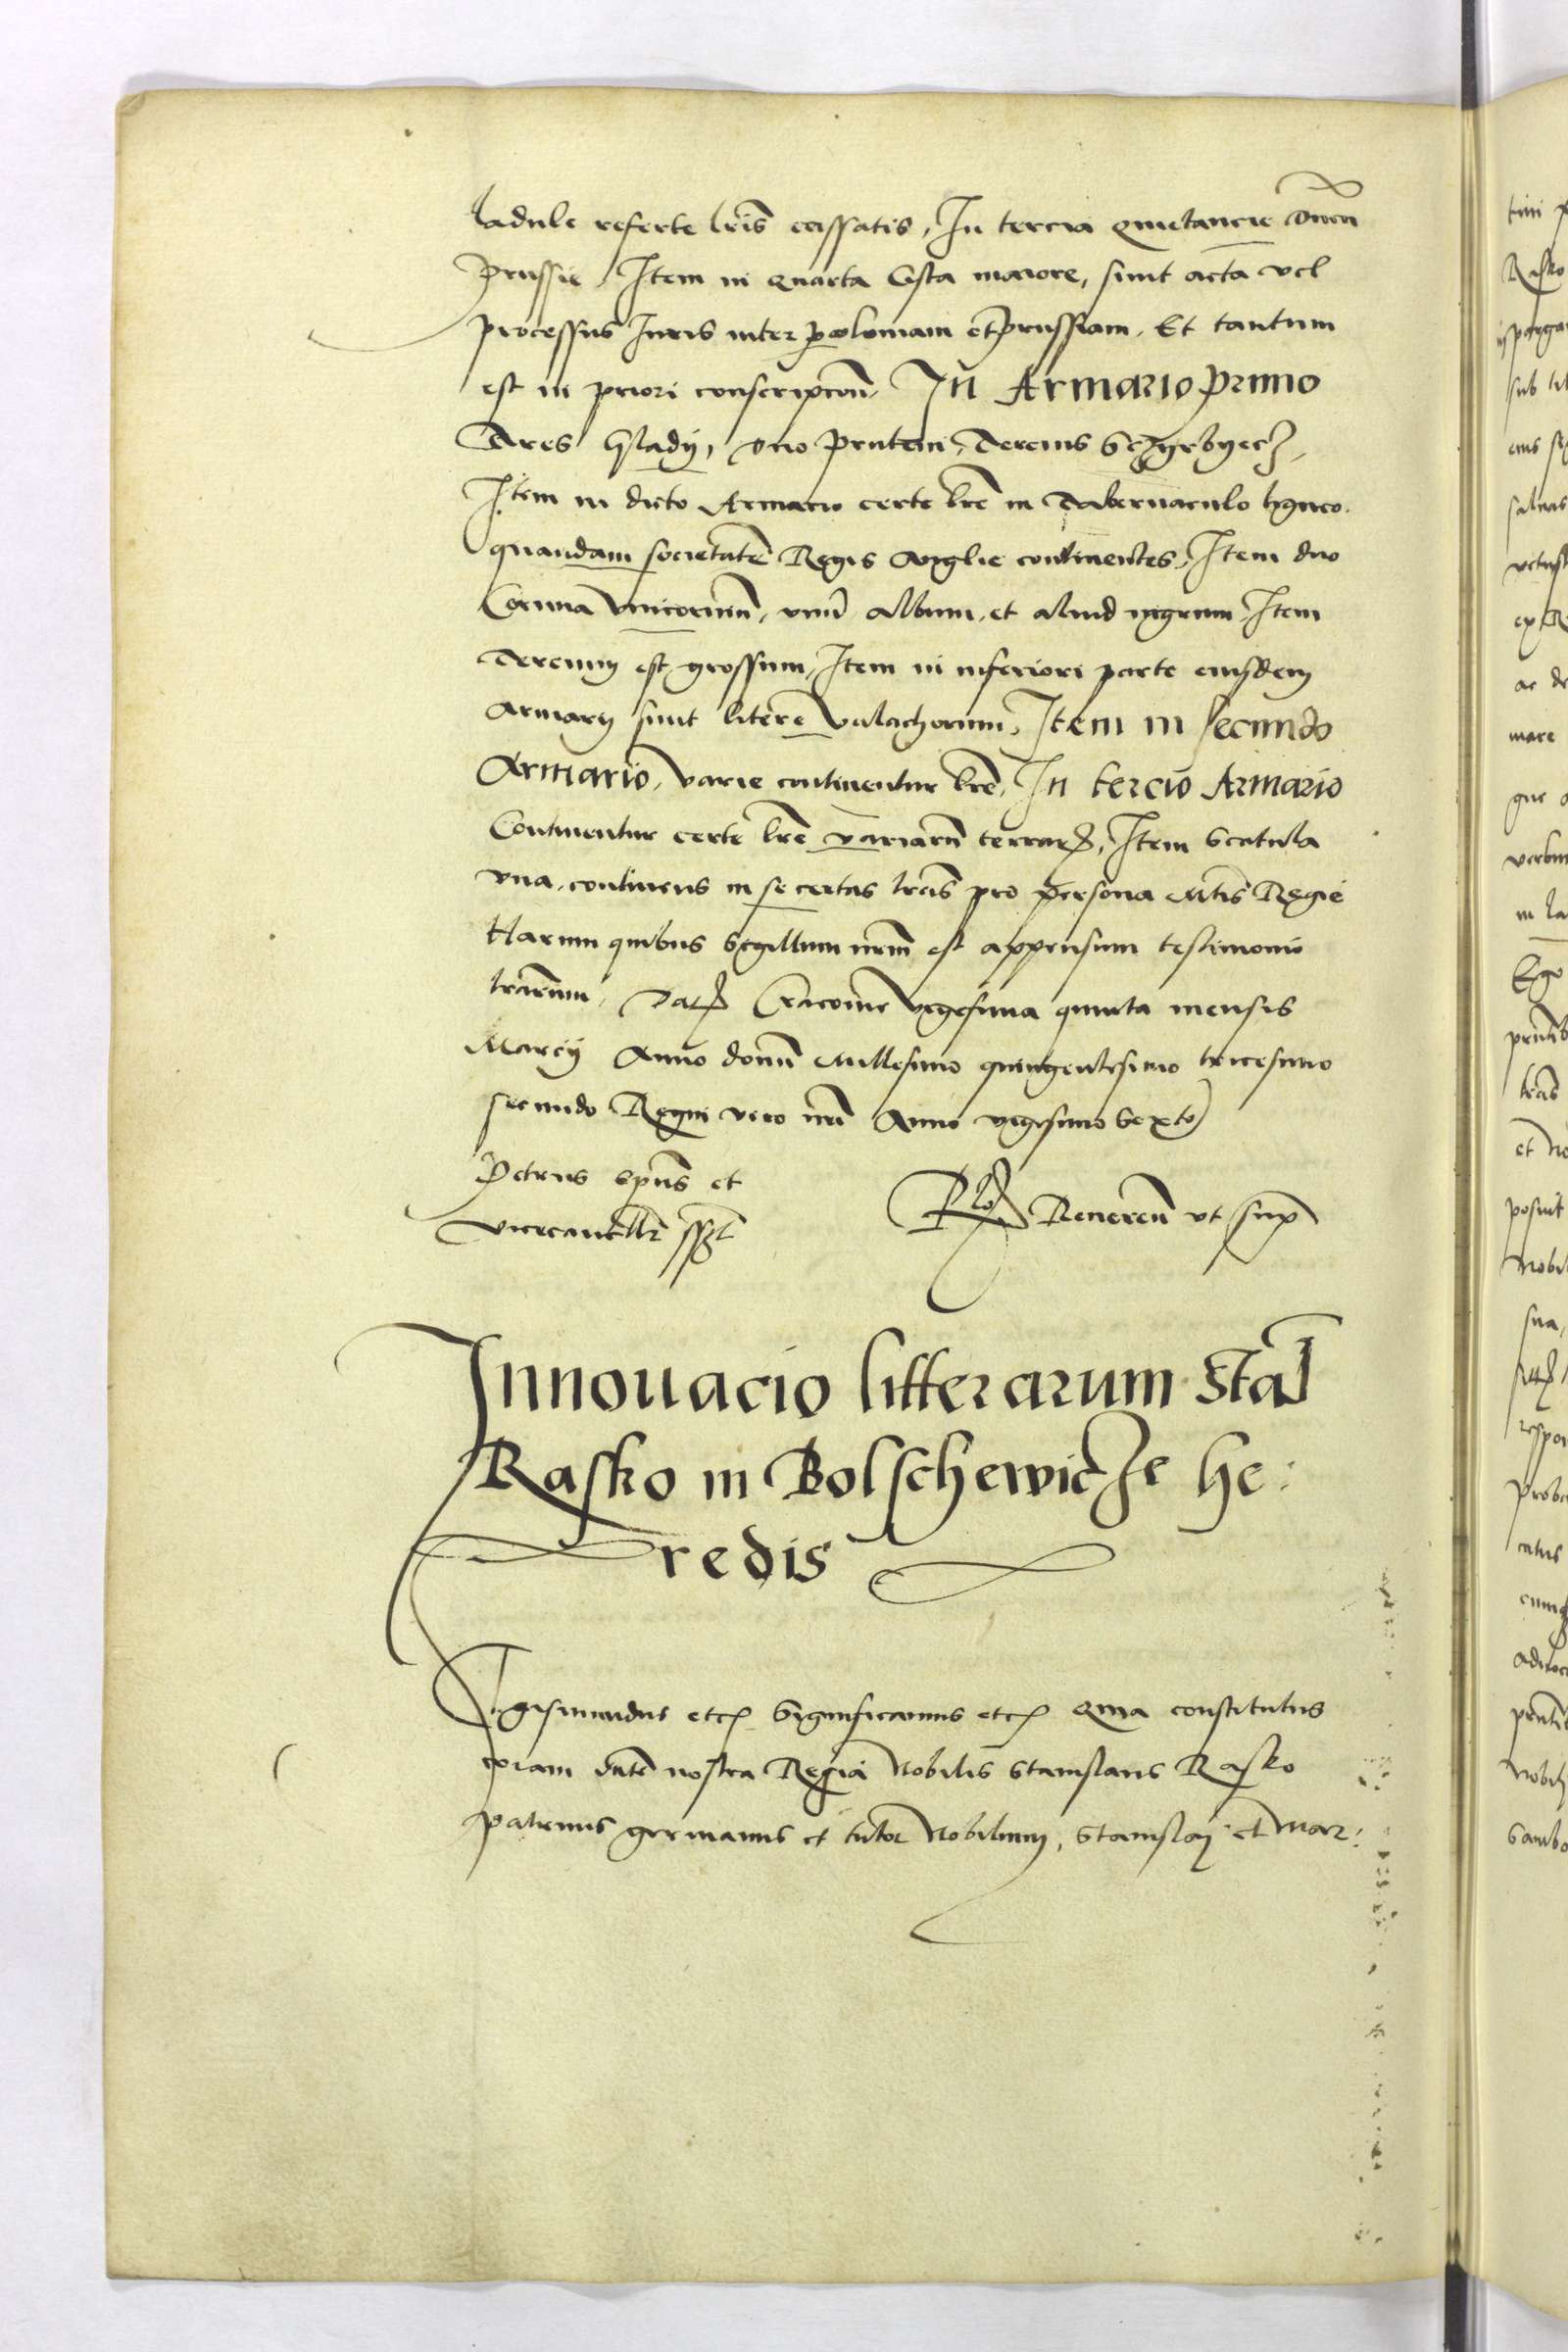 ladule referte lris cassatis, In tercia quietancie
Prussie, Item in quarta Cista maiore, sunt acta vel
processus Iuris inter poloniam et prussiam. Et tantum
est in priori conscripcion, In Armario primo
Tres Gladij, duo pruteni, Tercius Sczyrbyecz,
Item in dicto Armario certe lre in Tabernaculo ligneo.
quandam societatem Regis Anglie continentes, Item duo
Cornua vnicornium, vnum album, et aliud nigrum Item
Tercium est grossum, Item in inferiori parte eiusdem
Armarij sunt litere Valachorum, Item in secundo
Armario, varie continentur lre, In tercio Armario
Continentur certe lre variarum terrarum, Item Scatula
vna, continens in se certas lras pro persona Mtis Regie
Harum quibus Sigillum nrm est appensum testimonio
lrarum, Dat Cracovie vigesima quinta mensis
Marcij Anno domini Millesimo quingentesimo tricesimo
secundo Regni vero nri Anno vigesimo Sexto
Petrus epus et
vicecancellr sszt
Rlo Reveren vt supr
Innouacio litterarum Stal
Rasko in Bolschewicze he:
redis
Sigismundus etc Significamus etc Quia constitutus
coram nostra Regia Nobilis Stanislaus Rasko
patruus germanus et tutor Nobilium, Stanislaj et Mar: